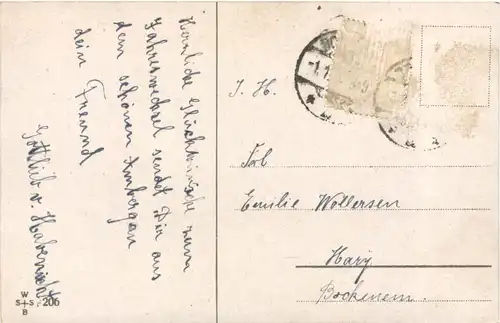 Herzliche Glückwünsche zum
Jahreswechsel sendet Dir aus
dem schönen Ambergau
dein Freund
Gottlieb v. Habenicht
J. H.
Frl.
Emilie Wollersen
Hary
Bockenem.
W
S S
B
206